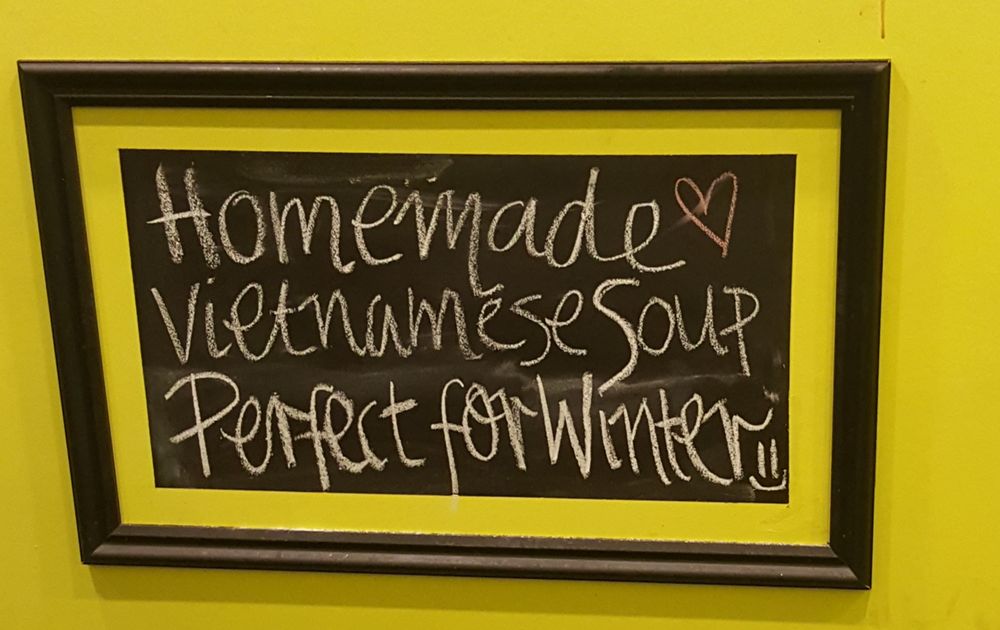 Homemade ♡
Vietnamese Soup
Perfect for Winter =)